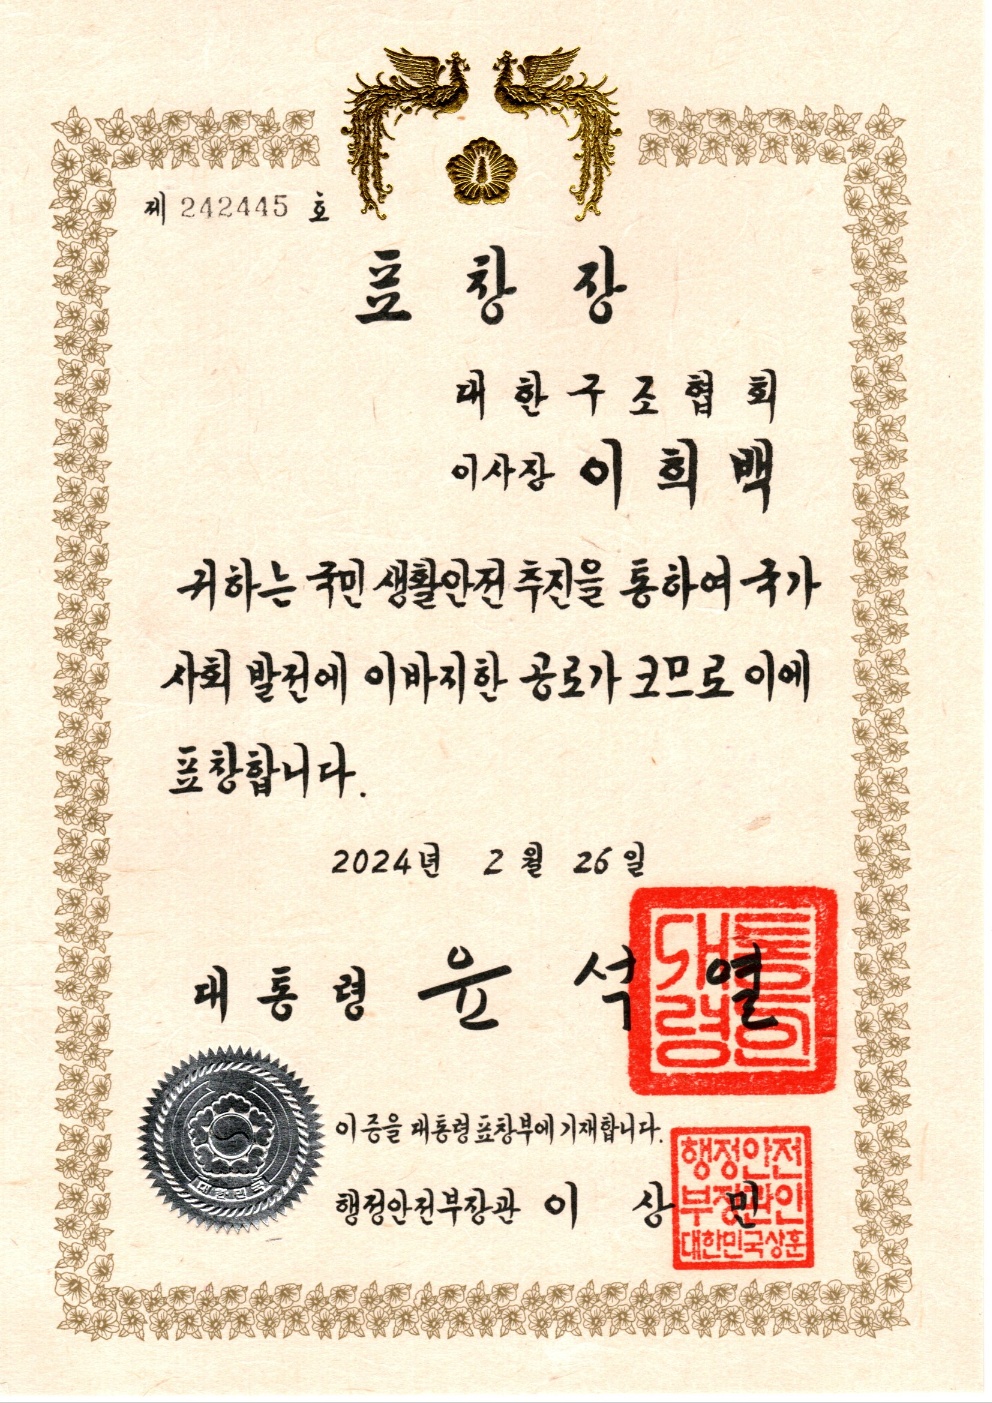 제 242445 호
표 창 장
대 한 구 조 협 회
이사장 이 희 백
귀하는 국민 생활안전 추진을 통하여 국가
사회 발전에 이바지한 공로가 크므로 이에
표창합니다.
2024년 2월 26일
대 통 령 윤 석 열
대통
령의인
대한민국
이 증을 대통령표창부에 기재합니다.
행정안전부장관 이 상 민
행정안전
부장관인
대한민국상훈